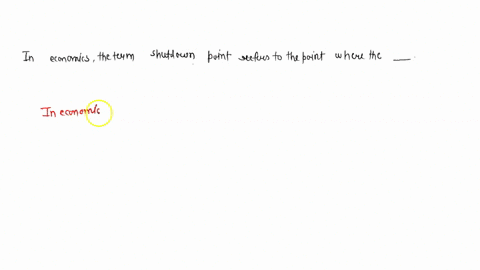 In economics, the term shutdown point refers to the point where the __.
In economic